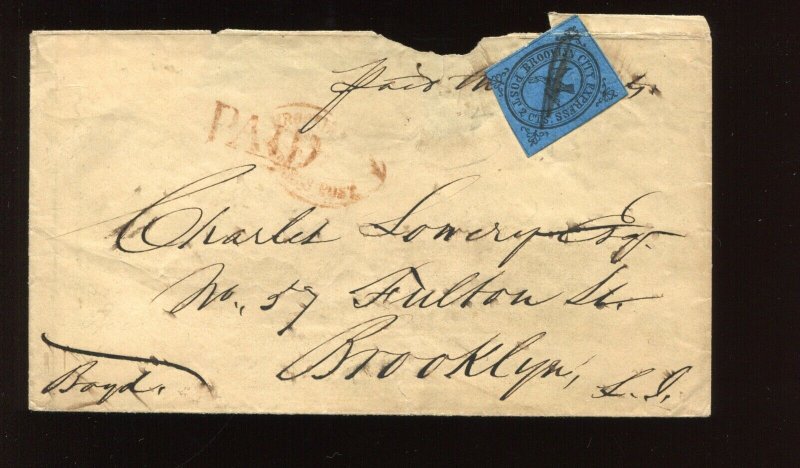 Paid
BROOKLYN CITY EXPRESS POST 2 CTS.
PAID
POST
Charles Lowery Esq.
No. 57 Fulton St.
Brooklyn,
L. I.
Boyd.